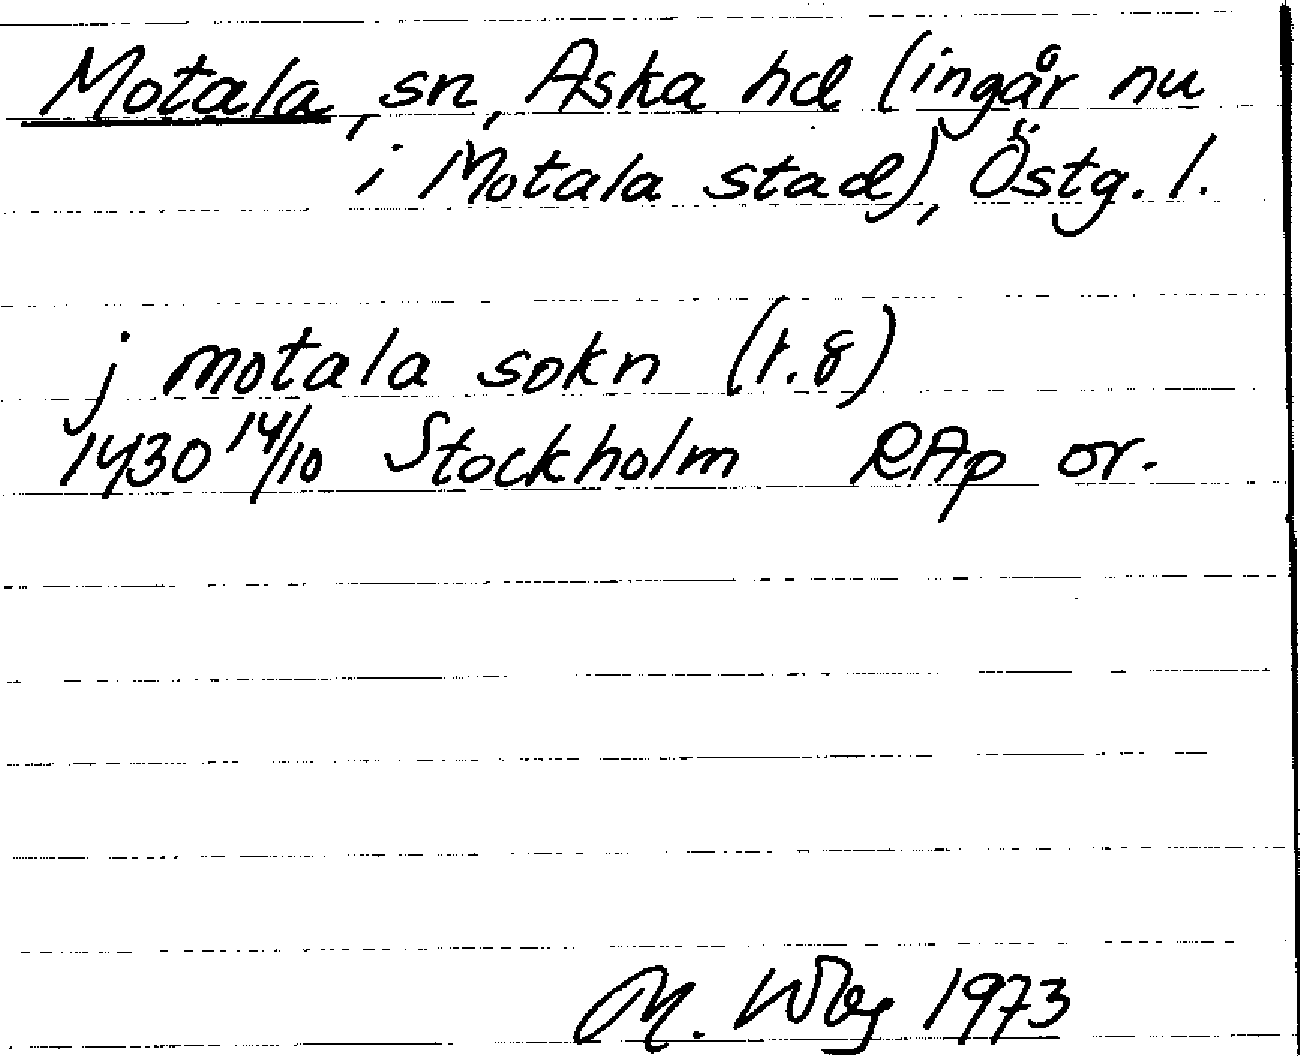 Motala, sn, Aska hd (ingår nu
i Motala stad), Östg. l.
j motala sokn (r. 8)
1430 14/10 Stockholm RAp or.
M. 1973